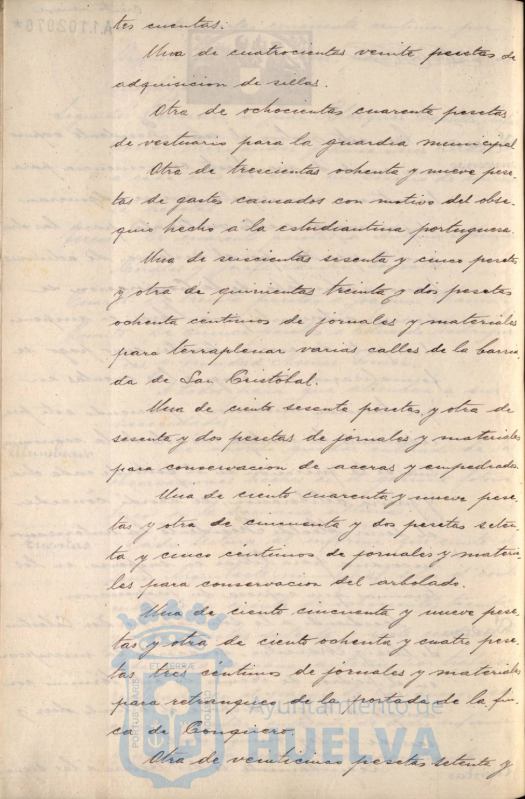 tes cuentas.
Una de cuatrocientas veinte pesetas de
adquisicion de sillas.
Otra de ochocientas cuarenta pesetas
de vestuario para la guardia municipal.
Otra de trescientas ochenta y nueve pese-
tas de gastos causados con motivo del obse-
quio hecho a la estudiantina portuguesa.
Una de seiscientas sesenta y cinco pesetas
y otra de quinientas treinta y dos pesetas
ochenta centimos de jornales y materiales
para terraplenar varias calles de la barria-
da de San Cristóbal.
Una de ciento sesenta pesetas y otra de
sesenta y dos pesetas de jornales y materiales
para conservacion de aceras y empedrados.
Una de ciento cuarenta y nueve pese-
tas y otra de cincuenta y dos pesetas seten-
ta y cinco céntimos de jornales y materia-
les para conservacion del arbolado.
Una de ciento cincuenta y nueve pese-
tas y otra de ciento ochenta y cuatro pese-
tas tres céntimos de jornales y materiales
para retranqueo de la portada de la fin-
ca de Conquero.
Otra de veinticinco pesetas setenta y
Ayuntamiento de
HUELVA
PORTUS MARIS
ET TERRAE
CUSTODIA